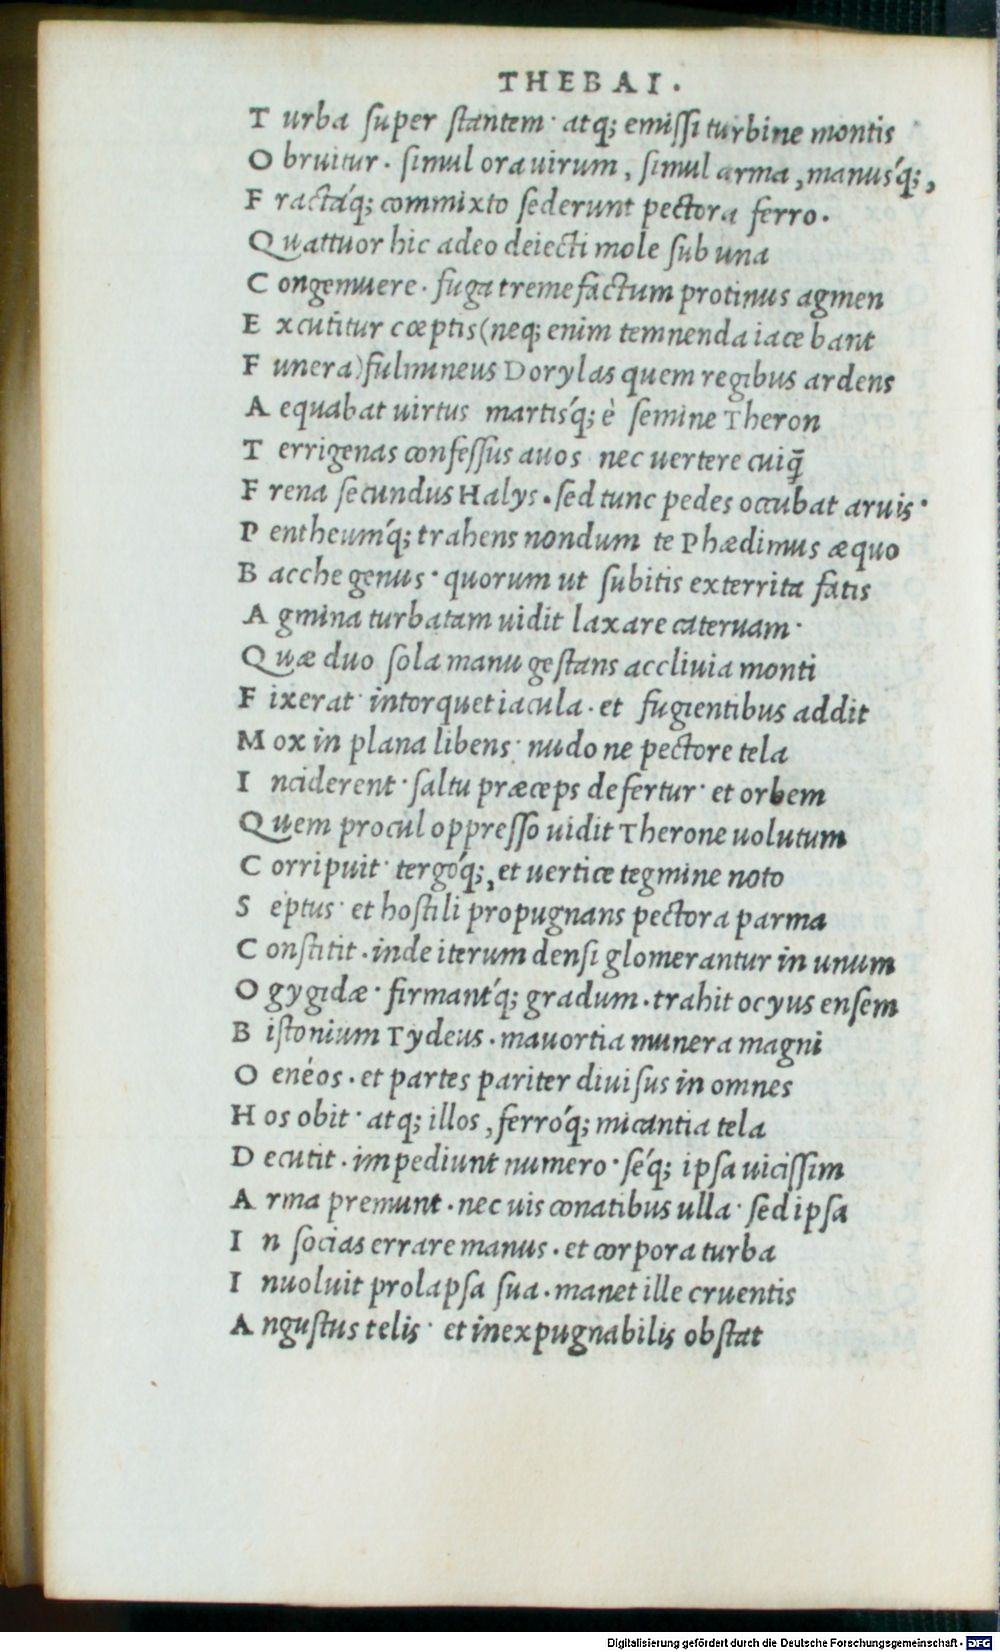 THEBAI.
T urba ſuper ſtantem· atq; emiſſi turbine montis
O bruitur· ſimul ora uirum, ſimul arma, manuśq;,
F ractáq; commixto ſederunt pectora ferro.
Q uattuor hic adeo deiecti mole ſub una
C ongemuere· fuga tremefactum protinus agmen
E xcutitur cœptis(neq; enim temnenda iacebant
F unera)fulmineus Dorylas quem regibus ardens
A equabat uirtus martiśq; è ſemine Theron
T errigenas confeſſus auos nec uertere cuiq̃
F rena ſecundus Halys·ſed tunc pedes occubat aruis·
P entheuḿq; trahens nondum te Phædimus æquo
B acche genus· quorum ut ſubitis exterrita fatis
A gmina turbatam uidit laxare cateruam·
Q uæ duo ſola manu geſtans accliuia monti
F ixerat· intorquet iacula· et fugientibus addit
M ox in plana libens· nudo ne pectore tela
I nciderent· ſaltu præceps defertur· et orbem
Q uem procul oppreſſo uidit Therone uolutum
C orripuit· tergóq;, et uertice tegmine noto
S eptus· et hoſtili propugnans pectora parma
C onſtitit·inde iterum denſi glomerantur in unum
O gygidæ· firmant́q; gradum·trahit ocyus enſem
B iſtonium Tydeus·mauortia munera magni
O enéos·et partes pariter diuiſus in omnes
H os obit· atq; illos, ferróq; micantia tela
D ecutit·impediunt numero·ſéq; ipſa uiciſſim
A rma premunt·nec uis conatibus ulla· ſed ipſa
I n ſocias errare manus·et corpora turba
I nuoluit prolapſa ſua·manet ille cruentis
A nguſtus telis· et inexpugnabilis obſtat
Digitalisierung gefördert durch die Deutsche Forschungsgemeinschaft - DFG